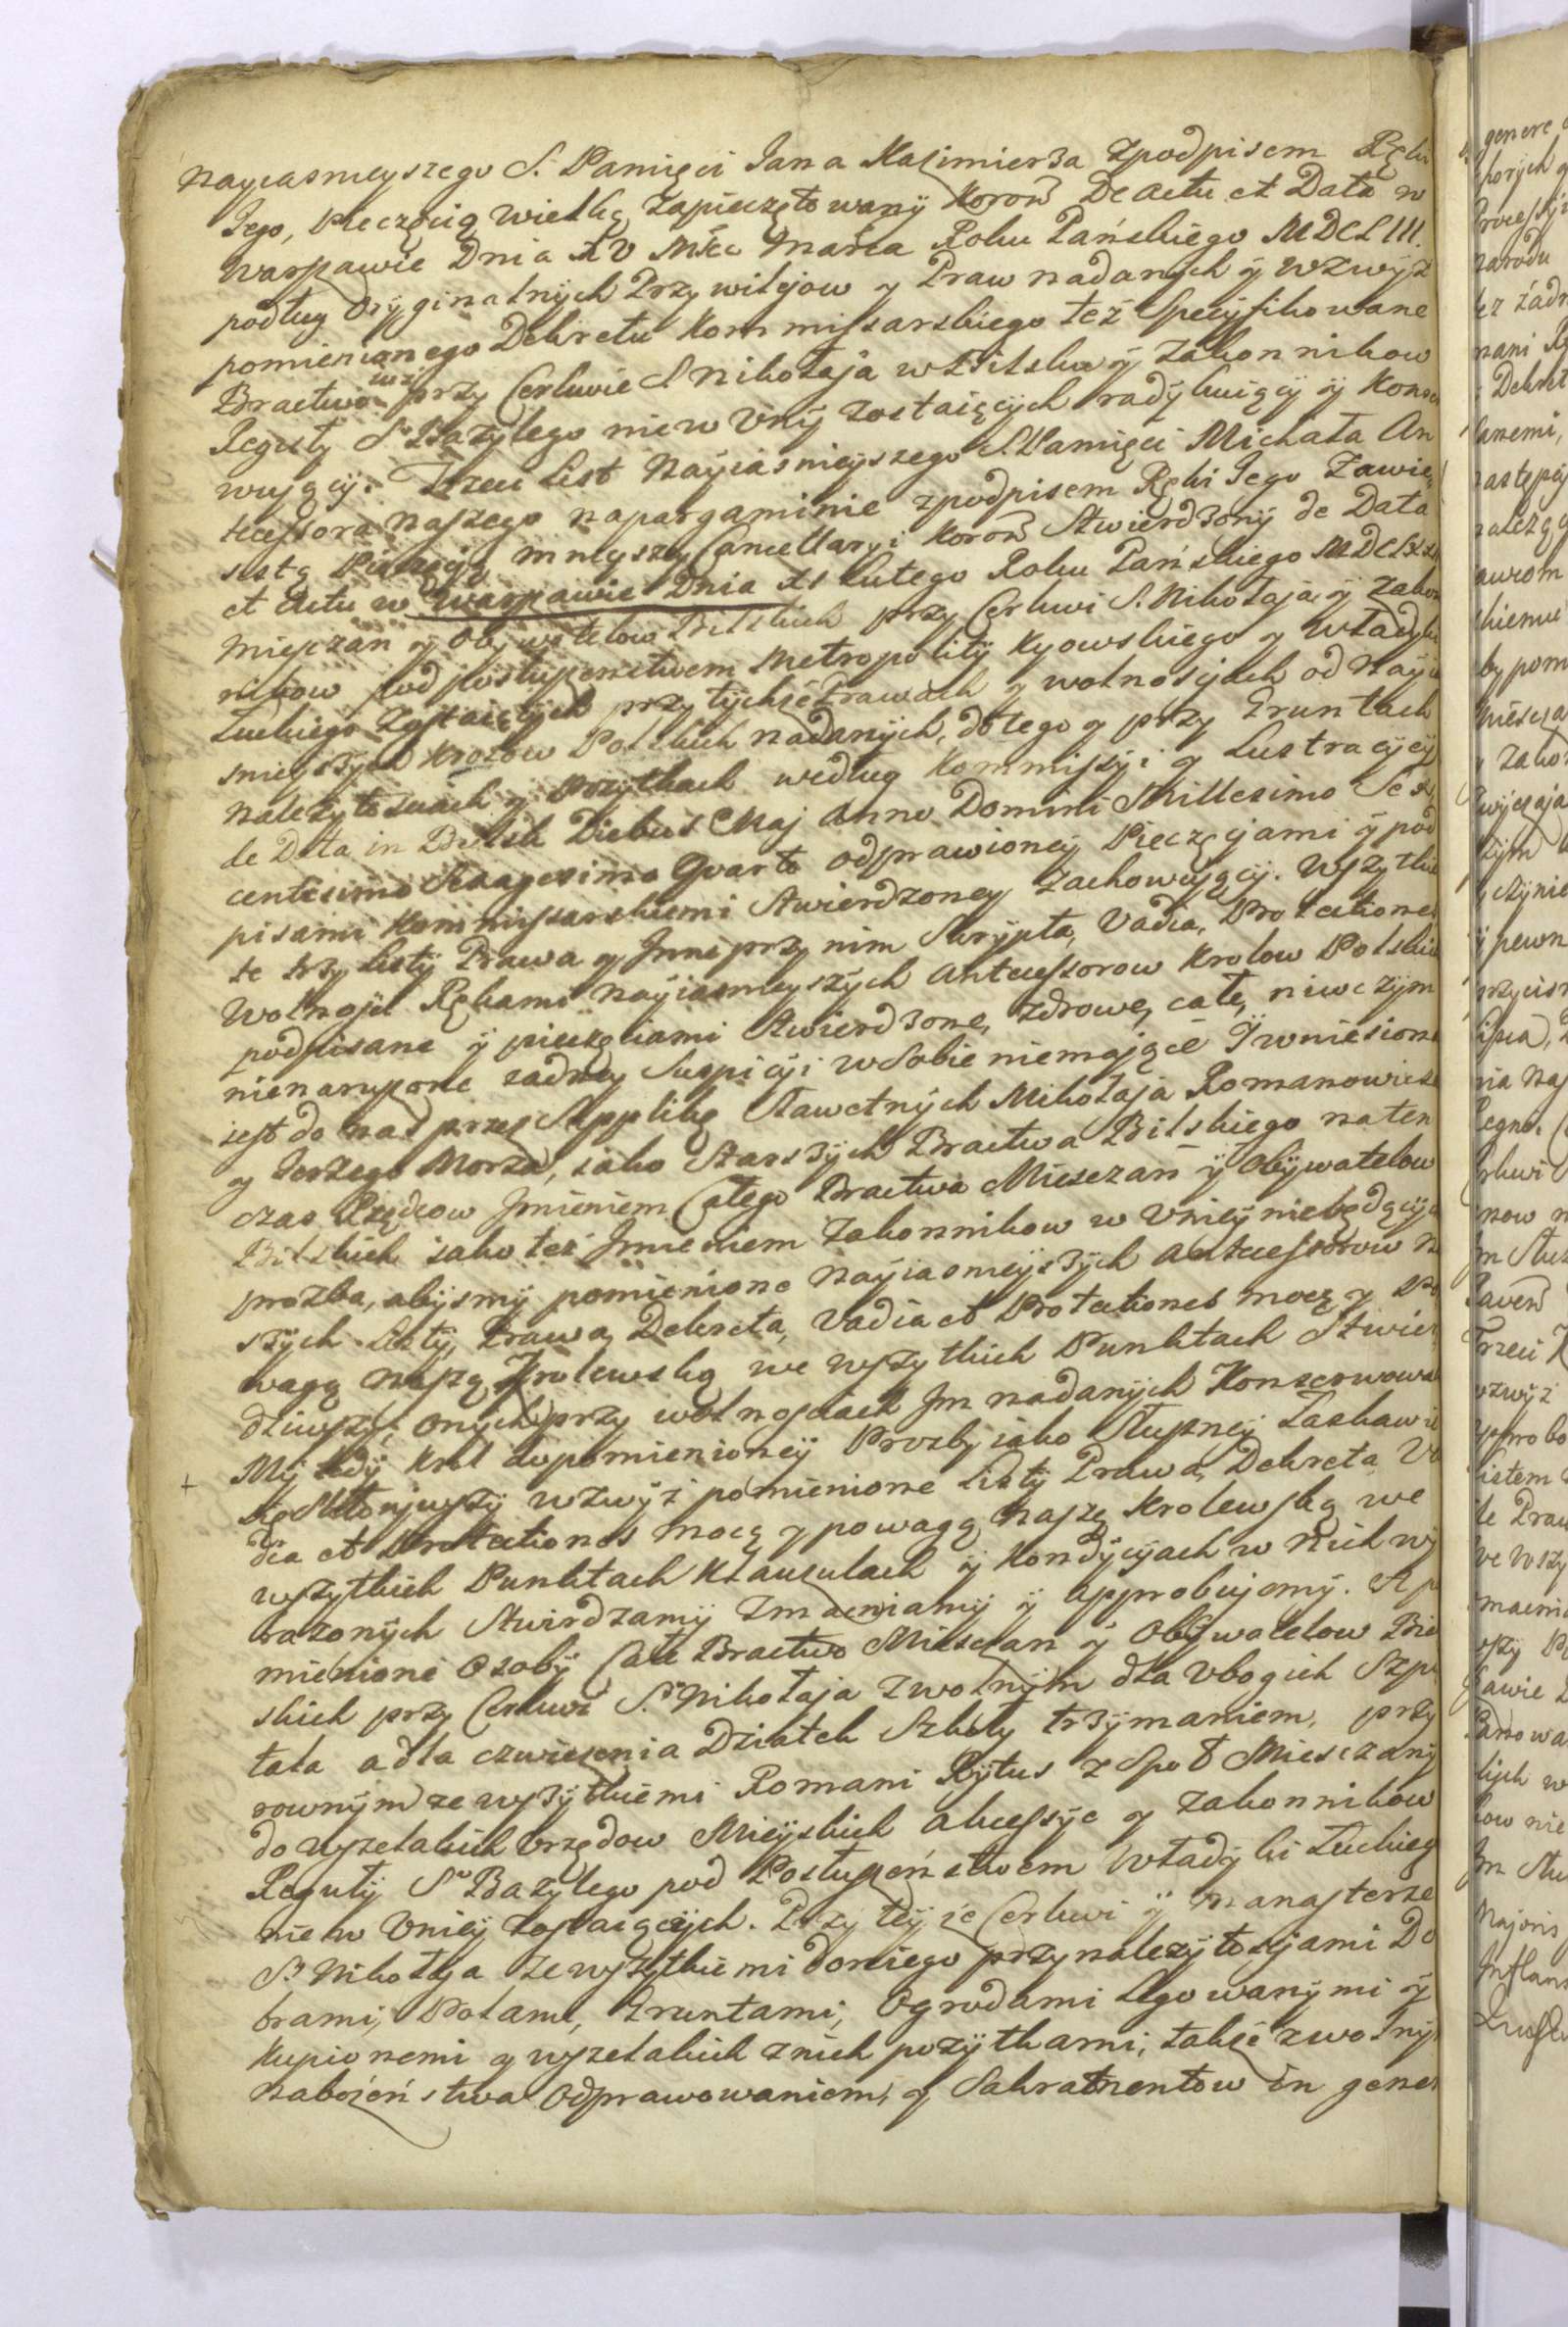 Nayiasnieyszego S. Pamięci Jana Kazimierza zpodpisem Ręki
Jego, Pieczęcią wielką zapieczętowany Koron De Actu et Data w
Warszawie Dnia XV Msca Marca Roku Pańskiego MDCLIII.
podług Oryginalnych Przywilejow y Praw nadanych y wzwyż
pomienionego Dekretu Kommissarskiego też Specyfikowane
Bractwo przy Cerkwie S Nikołaja w Bilsku y Zakonnikow
Reguły S° Bazylego nie w Unij zostaiących radykuiący y Konser
wuiący. Trzeci List Nayiasnieyszego S. Pamięci Michała An
tecessora naszego na pargaminie zpodpisem Ręki Jego Zawie
sistą Pieczęcią mnieyszey Cancellaryi Koron Stwierdzony de Data
et Actu w Warszawie Dnia XI Lutego Roku Pańskiego
Mieszczan y Obywatelow Bilskich przy Cerkwi S. Nikołaja y Zakon
nikow pod posłuszenstwem Metropolity Kyowskiego y Władyki
Łuckiego Zostaiących przy tychże Prawach y wolnosciach od Nayia
snieyszych Krolow Polskich nadanych, do tego y przy Gruntach
należytosciach y Pożytkach według Kommissyi y Lustracyey
de Data in Bielsk Diebus Maj Anno Domini Millesimo Sex
centesimo Sexagesimo Quarto odprawioney Pieczęciami y pod
pisami Kommissarskiemi Stwierdzoney Zachowuiący. Wszytkie
te trzy Listy Prawa y Inne przy nim Skrypta, Vadia, Protectiones
Wolnosci Rękami Nayiasnieyszych Antecessorow Krolow Polskich
podpisane y pieczęciami Stwierdzone, zdrowe, całe, niwczym
nienaruszone żadney Suspicyi w Sobie niemaiące Y wniesiona
iest do nas przez Supplikę Sławetnych Mikołaja Romanowicza
y Jerzego Morza, iako Starszych Bractwa Bilskiego na ten
czas Rządcow Imieniem Całego Bractwa Miesczan y Obywatelow
Bilskich iako też Imieniem Zakonnikow w Uniey niebędących
prozba, abysmy pomienione Nayiasnieyszych Antecessorow na
szych Listy, Prawa, Dekreta, Vadia et Protectiones mocą y po
wagą naszą Krolewską we wszytkich Punktach Stwier
dziwszy, onych przy wolnosciach Im nadanych Konserwowali
My tedy Krol do pomienioney Prozby iako Słuszney Łaskawie
się Skłoniwszy wzwyż pomienione Listy Prawa, Dekreta Va
dia et Protectiones mocą y powagą naszą Krolewską we
wszytkich Punktach Klauzulach y Kondycyach w nich wy
rażonych Stwirdzamy Zmacniamy y approbujemy. A po
mienione Osoby Całe Bractwo Miesczan y Obywatelow Bil
skich przy Cerkwi S° Nikołaja zwolnym dla Ubogich Szpi
tala a dla czwiczenia Dziatek Szkoły trzymaniem, przy
rownym ze wszytkiemi Romani Rytus z Społ Miesczany
do wszelakich Urzędow Mieyskich akcessyę y Zakonnikow
Reguły S° Bazylego pod Posłuszeństwem Władyki Łuckieg
nie w Uniey Zostaiących. Przy teyże Cerkwi y Manasterze
S° Nikołaja ze wszytkiemi do niego przynależytosciami Do
brami, Polami, Gruntami, Ogrodami legowanymi y
Kupionemi y wszelakich z nich pożytkami, także zwolnym
Nabożeństwa Odprawowaniem, y Sakramentow in gener